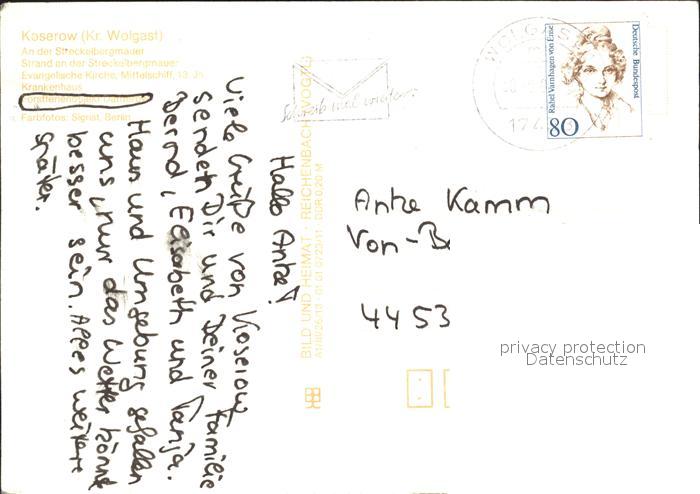 Koserow (Kr. Wolgast)
An der Streckelbergmauer
Strand an der Streckelbergmauer
Evangelische Kirche, Mittelschiff, 13. Jh.
Krankenhaus
Farbfotos: Signat, Berlin
Hallo Antje!
Viele Grüße von Koserow
senden Dir und Deiner Familie
Bernd, Elisabeth und Tanja.
Haus und Umgebung gefallen
uns, nur das Wetter könnte
besser sein. Alles weitere
später.
BILD UND HEIMAT · REICHENBACH (VOGTL)
A1/III/26/13 01 01 0723/11 DDR 0,20 M
Schreib mal wieder
WOLGAST
Deutsche Bundespost
Rahel Varnhagen von Ense
80
Antje Kamm
Von-B
4453
privacy protection
Datenschutz